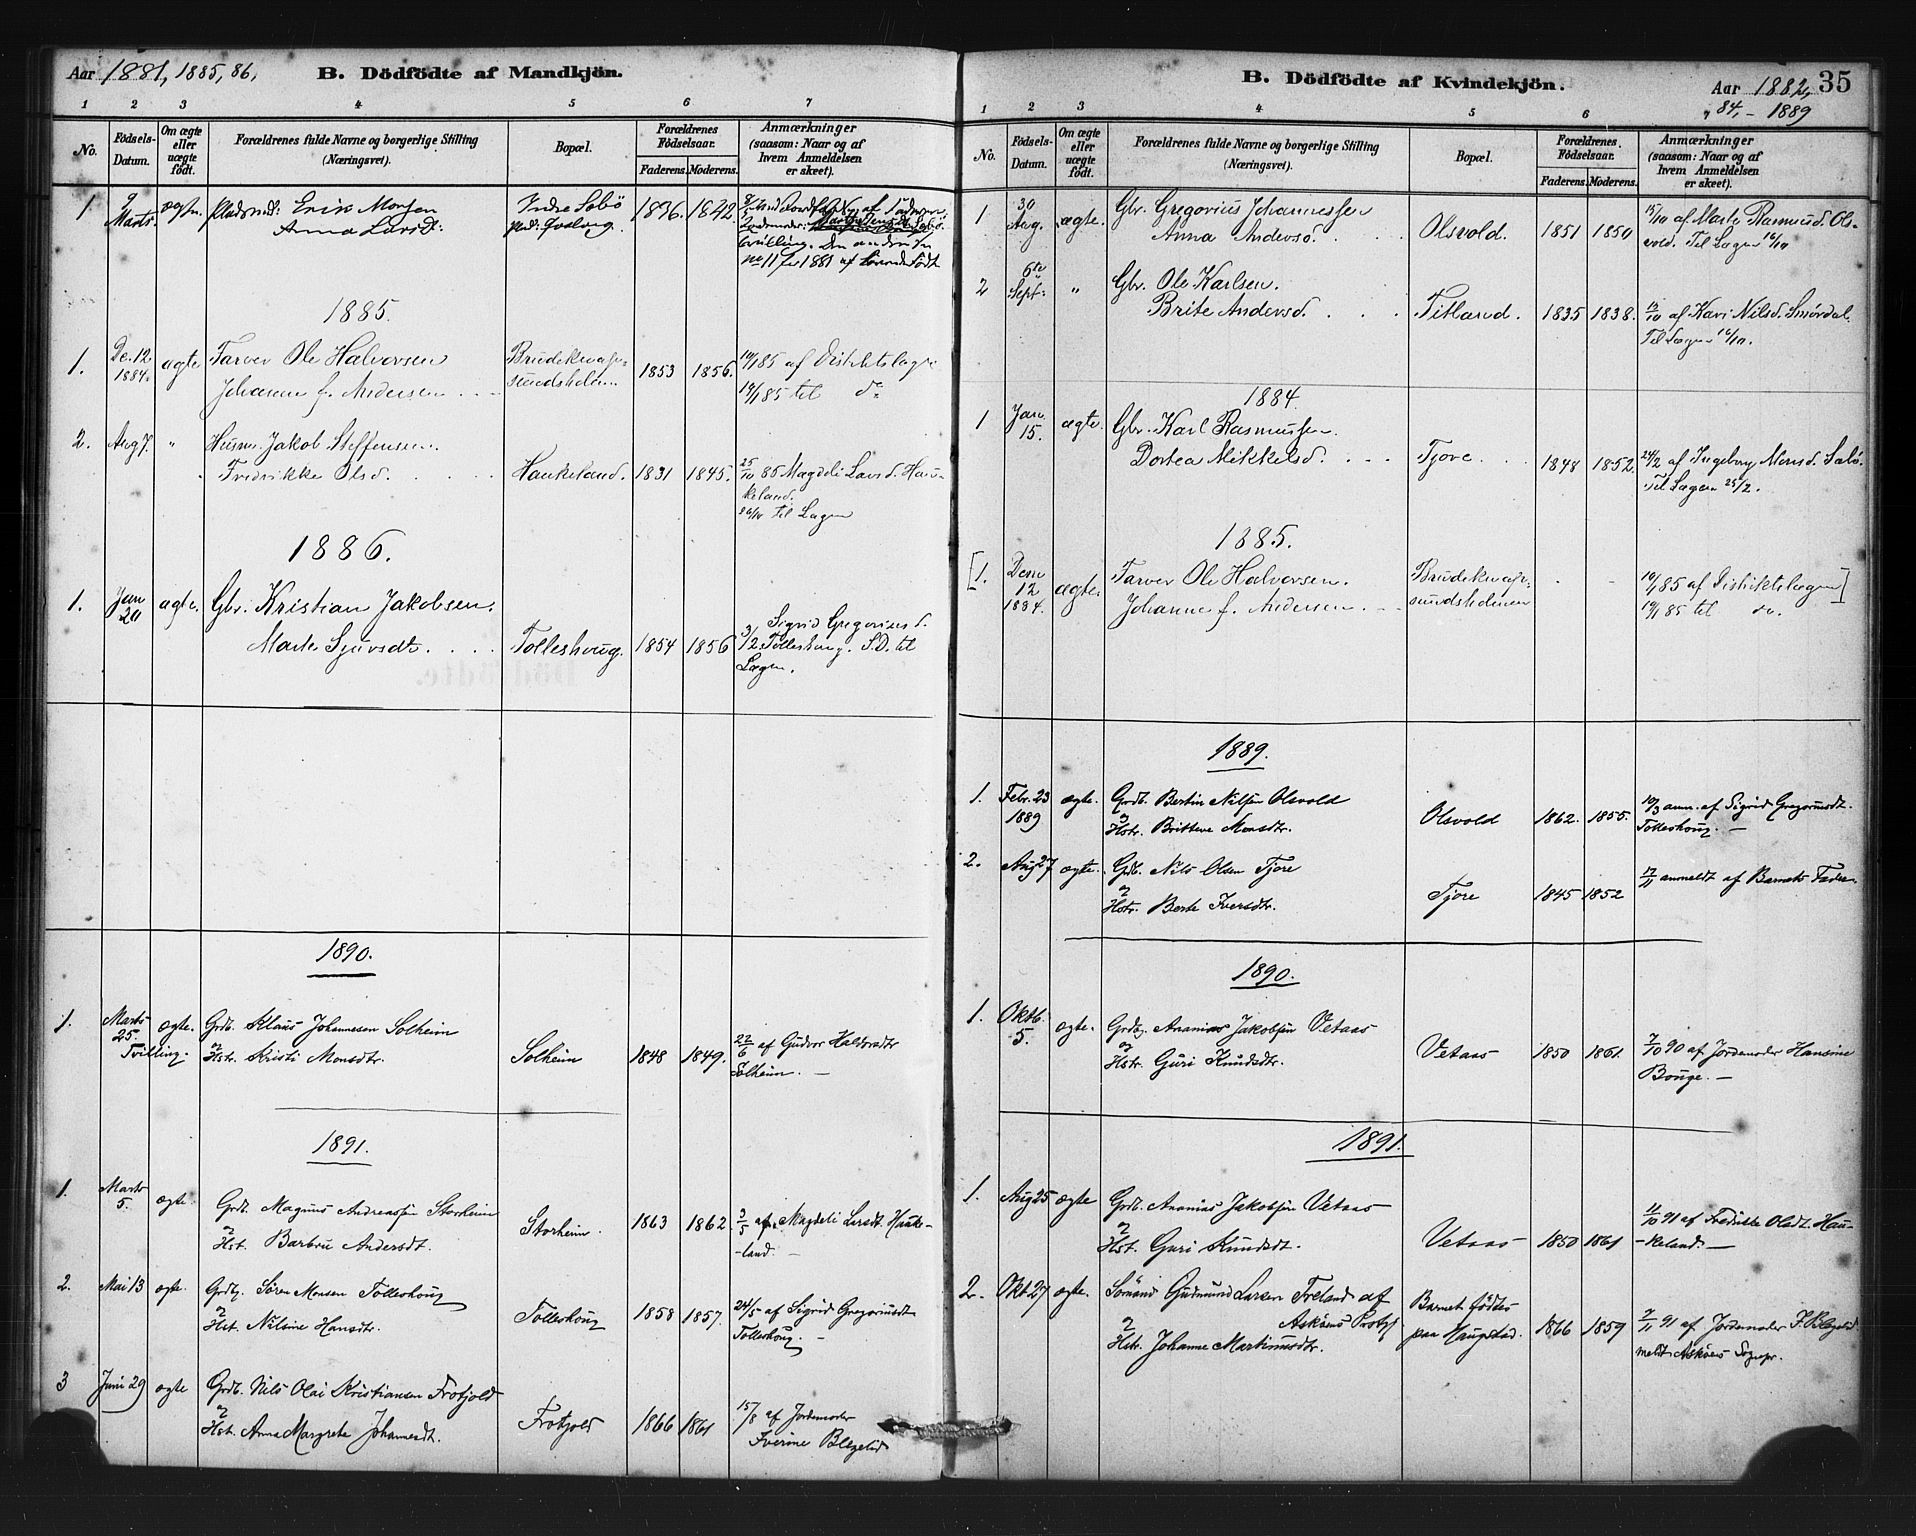 Aar 1881, 1885, 86,
B. Dödfödte af Mandkjön.
1 2 3 4 5 6 7
No.
Födsels-Datum.
Om ægte eller uægte födt.
Forældrenes fulde Navne og borgerlige Stilling (Næringsvei).
Bopæl.
Forældrenes Födselsaar.
Faderens. Moderens.
Anmærkninger (saasom: Naar og af hvem Anmeldelsen er skeet).
1 9 Marts ægte. Pladsmd: Erik Monsen
Anna Larsd:
Indre Sæbö
1842
tvilling. Den anden se
no 11 for 1881 af levendefödt
1885.
1. De. 12. 1884. ægte Farver Ole Halvorsen
Johanne f. Andersen
Brudeknapsundsholm. 1853 1856.
10/1 85 af Distiktslægen
19/1 85 til do
2. Aug 7. " Husm. Jakob Steffensen.
" Fredrikke Olsd.
Haukeland. 1831 1845.
25/10 85 Magdeli Larsd. Haukeland.
26/10 til Lægen
1886.
1. Jan 20 ægte. Gbr. Kristian Jakobsen.
Marte Sjursdtr.
Tolleshoug. 1854 1856
3/2 Sigrid Gregoriusd.
Tolleshoug. S.D. til
Lægen.
1890.
1. Marts 25. Tvilling. ægte. Grdb. Klaus Johannesen Solheim
og Hstr. Kristi Monsdtr.
Solheim 1848 1849.
22/6 af Gudvor Haldorsdtr
Solheim. —
1891.
1. Marts 5. ægte Grdb. Magnus Andreassen Storheim
og Hst. Barbru Andersdt.
Storheim. 1863 1862
3/5 af Magdeli Larsdt. Haukeland. —
2. Mai 13 ægte. Grdbr. Sören Monsen Tolleshoug
og Hst. Nilsine Hansdtr.
Tolleshoug 1858 1857.
24/5 af Sigrid Gregoriusdt
Tolleshoug. —
3 Juni 29 ægte Grdb. Nils Olai Kristiansen Frotjold
og Hst. Anna Margrete Johannesdt.
Frotjold 1866 1861
15/8 af Jordemoder
Iverine Blegelid
B. Dödfödte af Kvindekjön.
Aar 1882, 84, - 1889
35
1 2 3 4 5 6
No.
Födsels-Datum.
Om ægte eller uægte födt.
Forældrenes fulde Navne og borgerlige Stilling (Næringsvei).
Bopæl.
Forældrenes Födselsaar.
Faderens. Moderens.
Anmærkninger (saasom: Naar og af hvem Anmeldelsen er skeet).
1 30 Aug. ægte. Gbr. Gregorius Johannessen
Anna Andersd.
Olsvold. 1851 1850
15/10 af Marte Rasmusd. Olsvold. Til Lægen 16/10
2 6te Sept: " Gbr. Ole Karlsen.
Brite Andersd.
Titland. 1835 1838.
15/10 af Kari Nilsd. Smördal.
Til Lægen 16/10.
1884.
1 Jan. 15. ægte. Gbr. Karl Rasmussen.
Dortea Mikkelsd.
Tjore. 1848 1852.
24/2 af Ingeborg Monsd. Sæbö.
Til Lægen 25/2.
1885.
[1. Dem 12 1884. ægte. Farver Ole Halvorsen.
Johanne f. Andersen.
Brudeknapsundsholmen
10/1 85 af Distiktslægen]
19/1 85 til do.
1889.
1. Febr. 23 1889 ægte. Grdb. Bertin Nilsen Olsvold
og Hstr. Britteve Monsdtr.
Olsvold 1862. 1855.
10/3 anm. af Sigrid Gregoriusdt.
Tolleshoug. —
2. Aug 27 ægte. Grdb. Nils Olsen Tjore
og Hstr. Berte Iversdtr.
Tjore 1845 1852
17/11 anmeldt af Barnets Fader.
1890.
1. Oktb. 5. ægte. Grdbr. Ananias Jakobsen Vetaas
og Hstr. Guri Knudsdtr.
Vetaas 1850 1861.
7/10 90 af Jordemoder Hansine
Bouge. —
1891.
1. Aug 25 ægte Grdb. Ananias Jakobsen Vetaas
og Hst. Guri Knudsdt.
Vetaas 1850 1861
11/10 91 af Fredrikke Olsdt. Haukeland. —
2. Okt. 27 ægte. Sömand Gudmund Larsen Freland af
Asköens Prstgj
og Hstr. Johanne Martinusdtr.
Barnet födtes
paa Haugstad. 1866 1859
7/11 91 af Jordemoder I. Blegelid
meldt Asköens Sognepr.